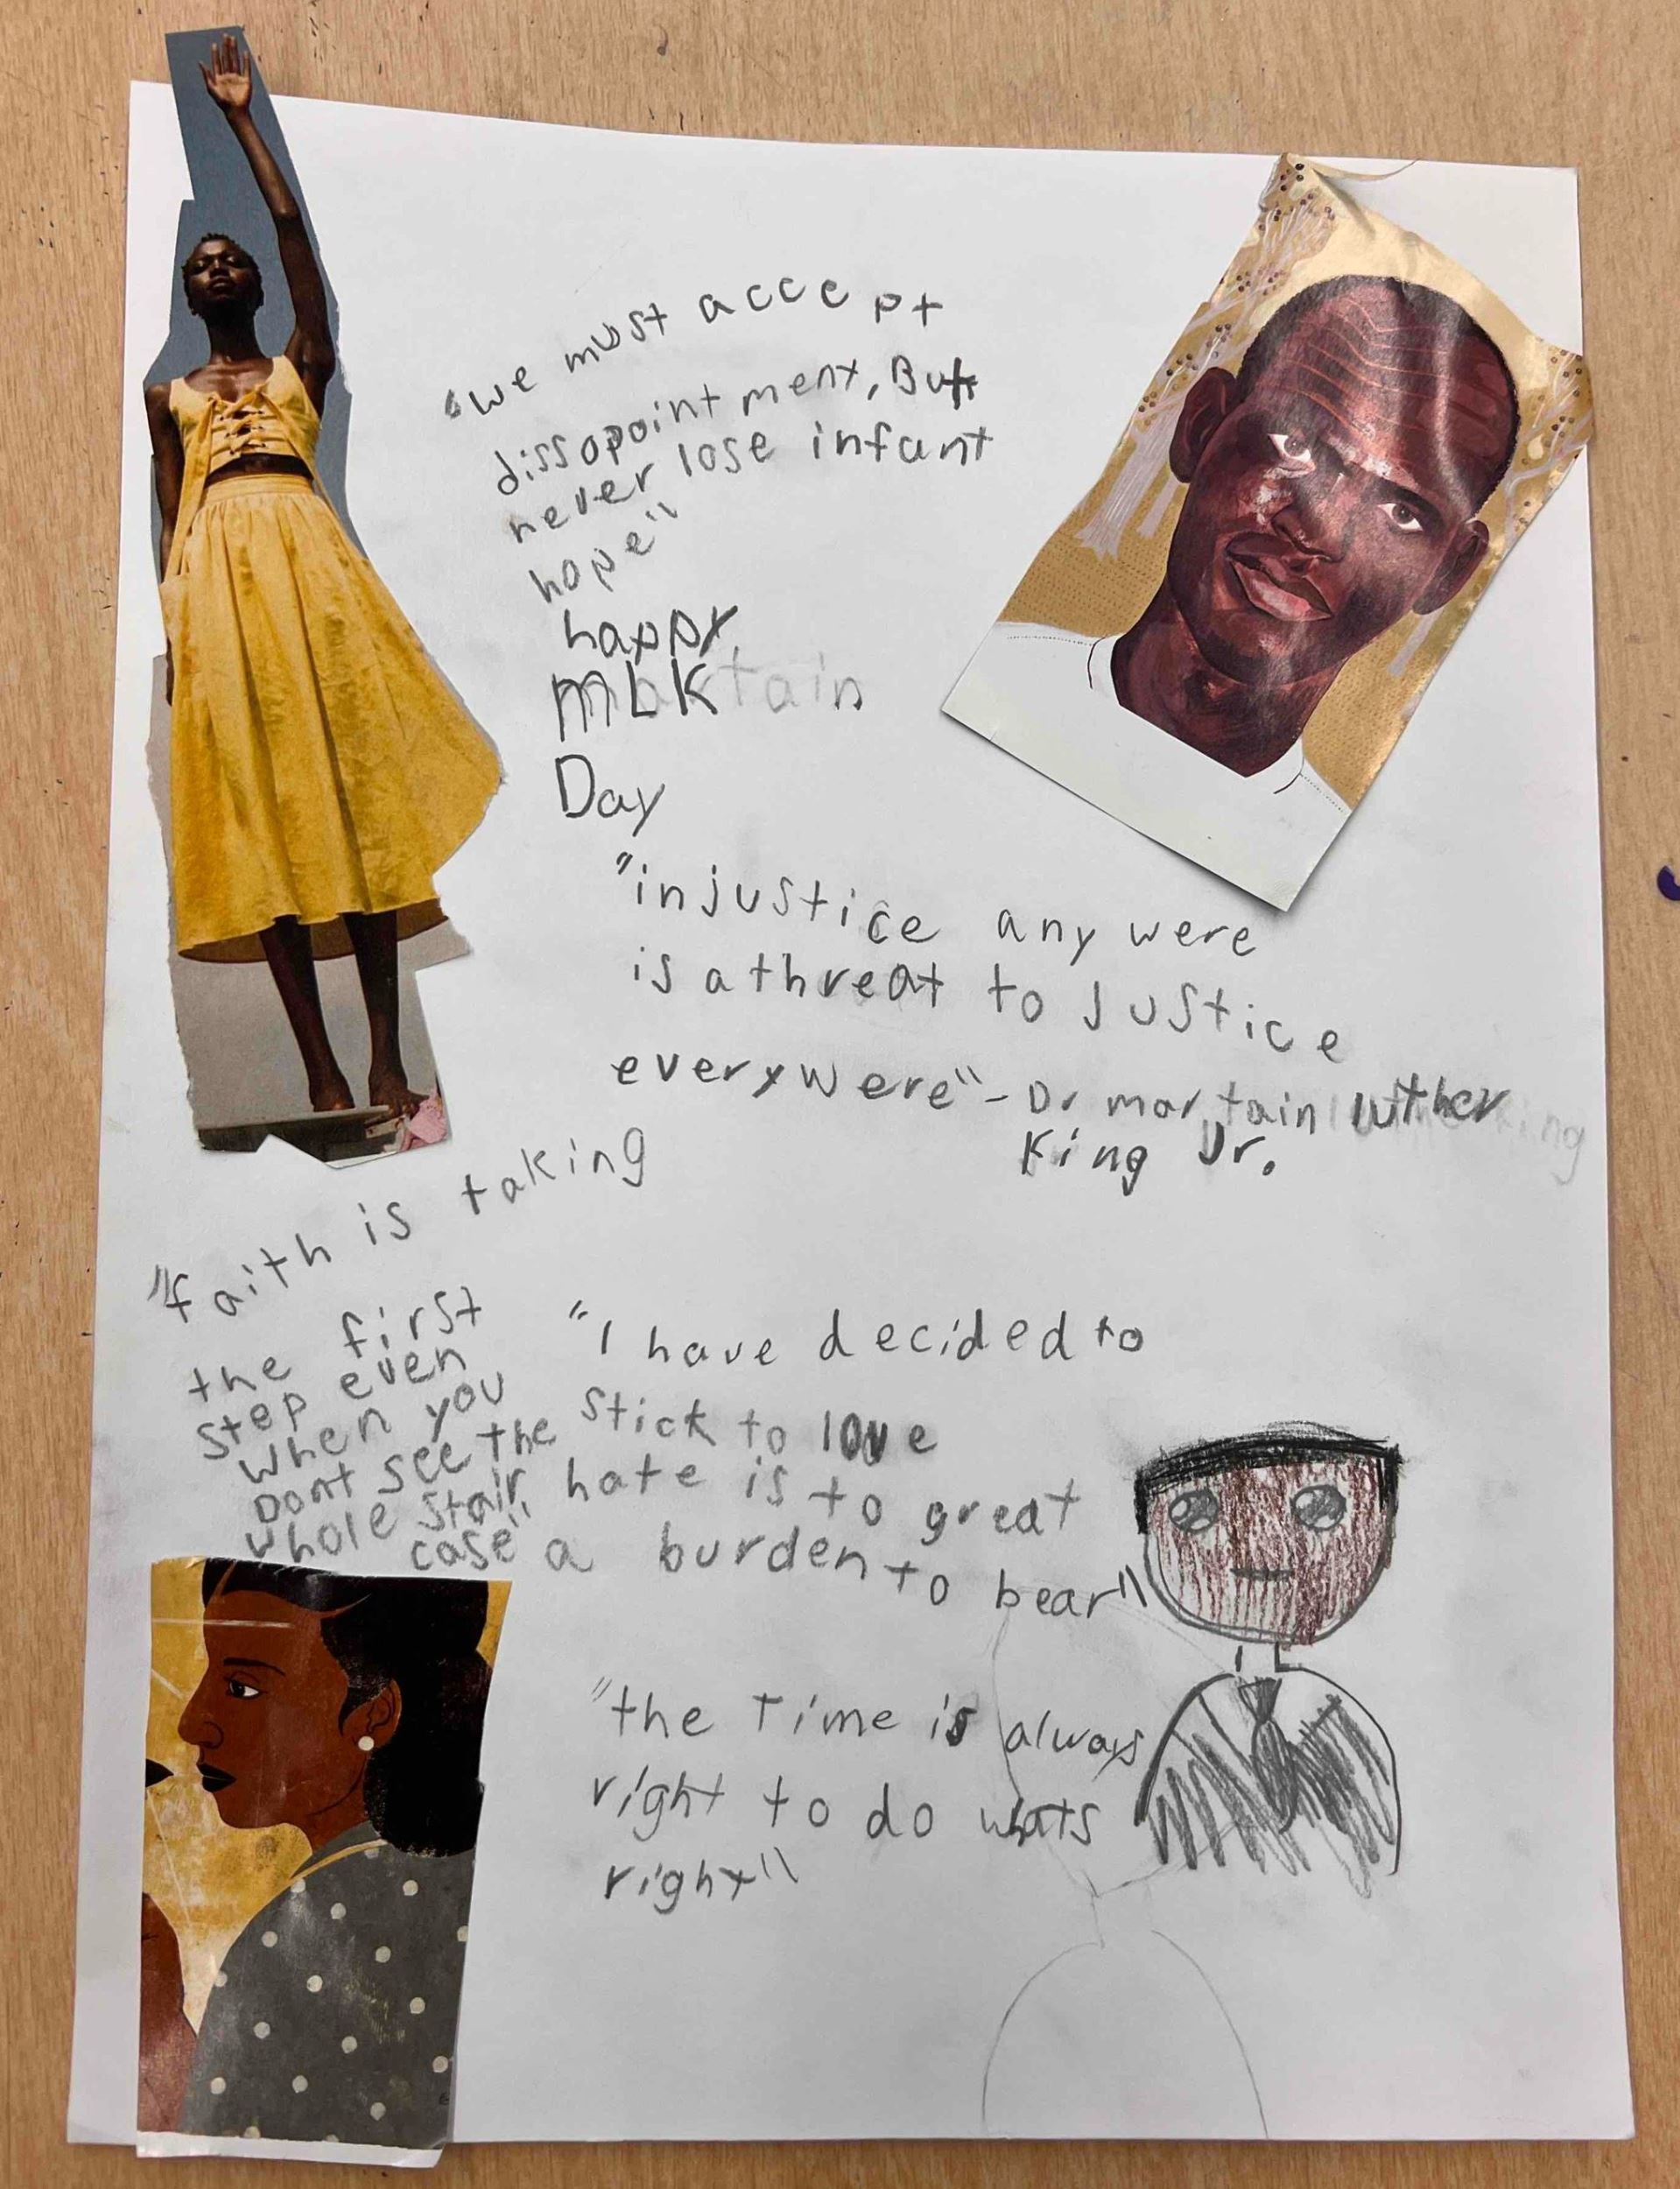 "we must accept
dissopointment, But
never lose infant
hope"
happy
mLK
Day
"injustice any were
is a threat to Justice
everywere" - Dr martain luther
King Jr.
"faith is taking
the first
step even
when you
Dont see the
whole stair
case"
"I have decided to
stick to love
hate is to great
a burden to bear"
"the Time is always
right to do whats
right"